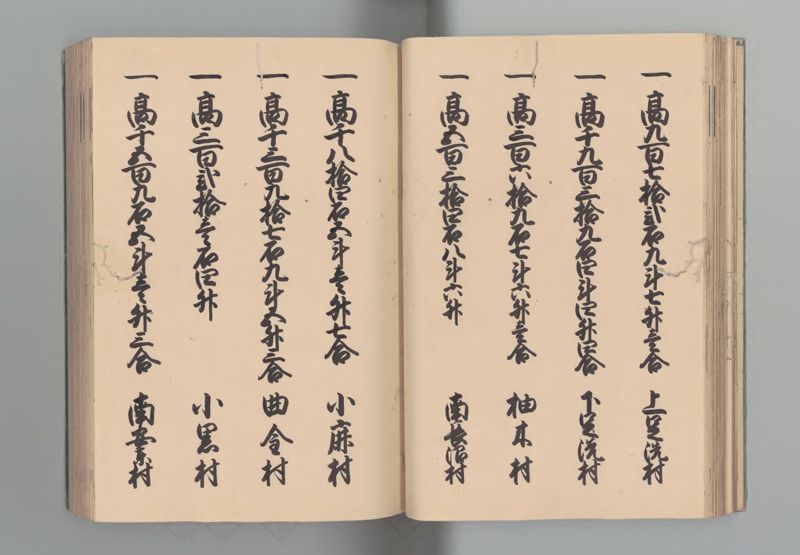 一 高九百七拾弐石九斗七升壱合 上足洗村
一 高千九百三拾九石四斗四升四合 下足洗村
一 高三百六拾九石七斗六升壱合 柚木村
一 高五百三拾四石八斗六升 南長沼村
一 高千八拾四石五斗壱升七合 小鹿村
一 高千三百九拾七石九斗五升三合 曲金村
一 高三百弐拾壱石四升 小黒村
一 高千五百九石五斗壱升三合 南安東村